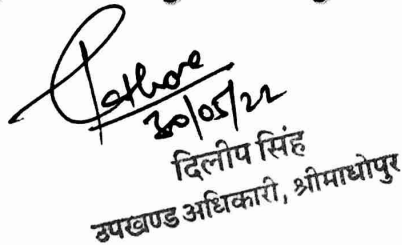 Rathore
30/05/22
दिलीप सिंह
उपखण्ड अधिकारी, श्रीमाधोपुर